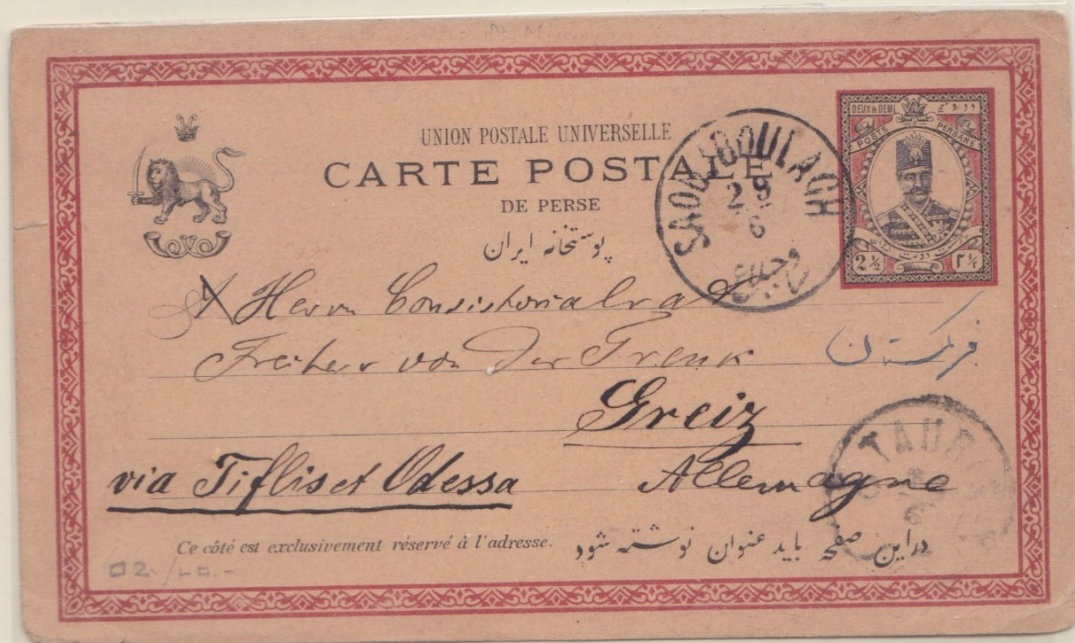 UNION POSTALE UNIVERSELLE
CARTE POSTALE
DE PERSE
پوستخانه ایران
SAOUDJBOULAGH
29
6
DEUX & DEMI
POSTE PERSANE
2 ½ ۲ ½
Herrn Consistorialrat
Freiherr von der Trenk
فرنگستان
Greiz
via Tiflis et Odessa
Allemagne
TAURIS
Ce côté est exclusivement réservé à l'adresse.
دراین صفحه باید عنوان نوشته شود